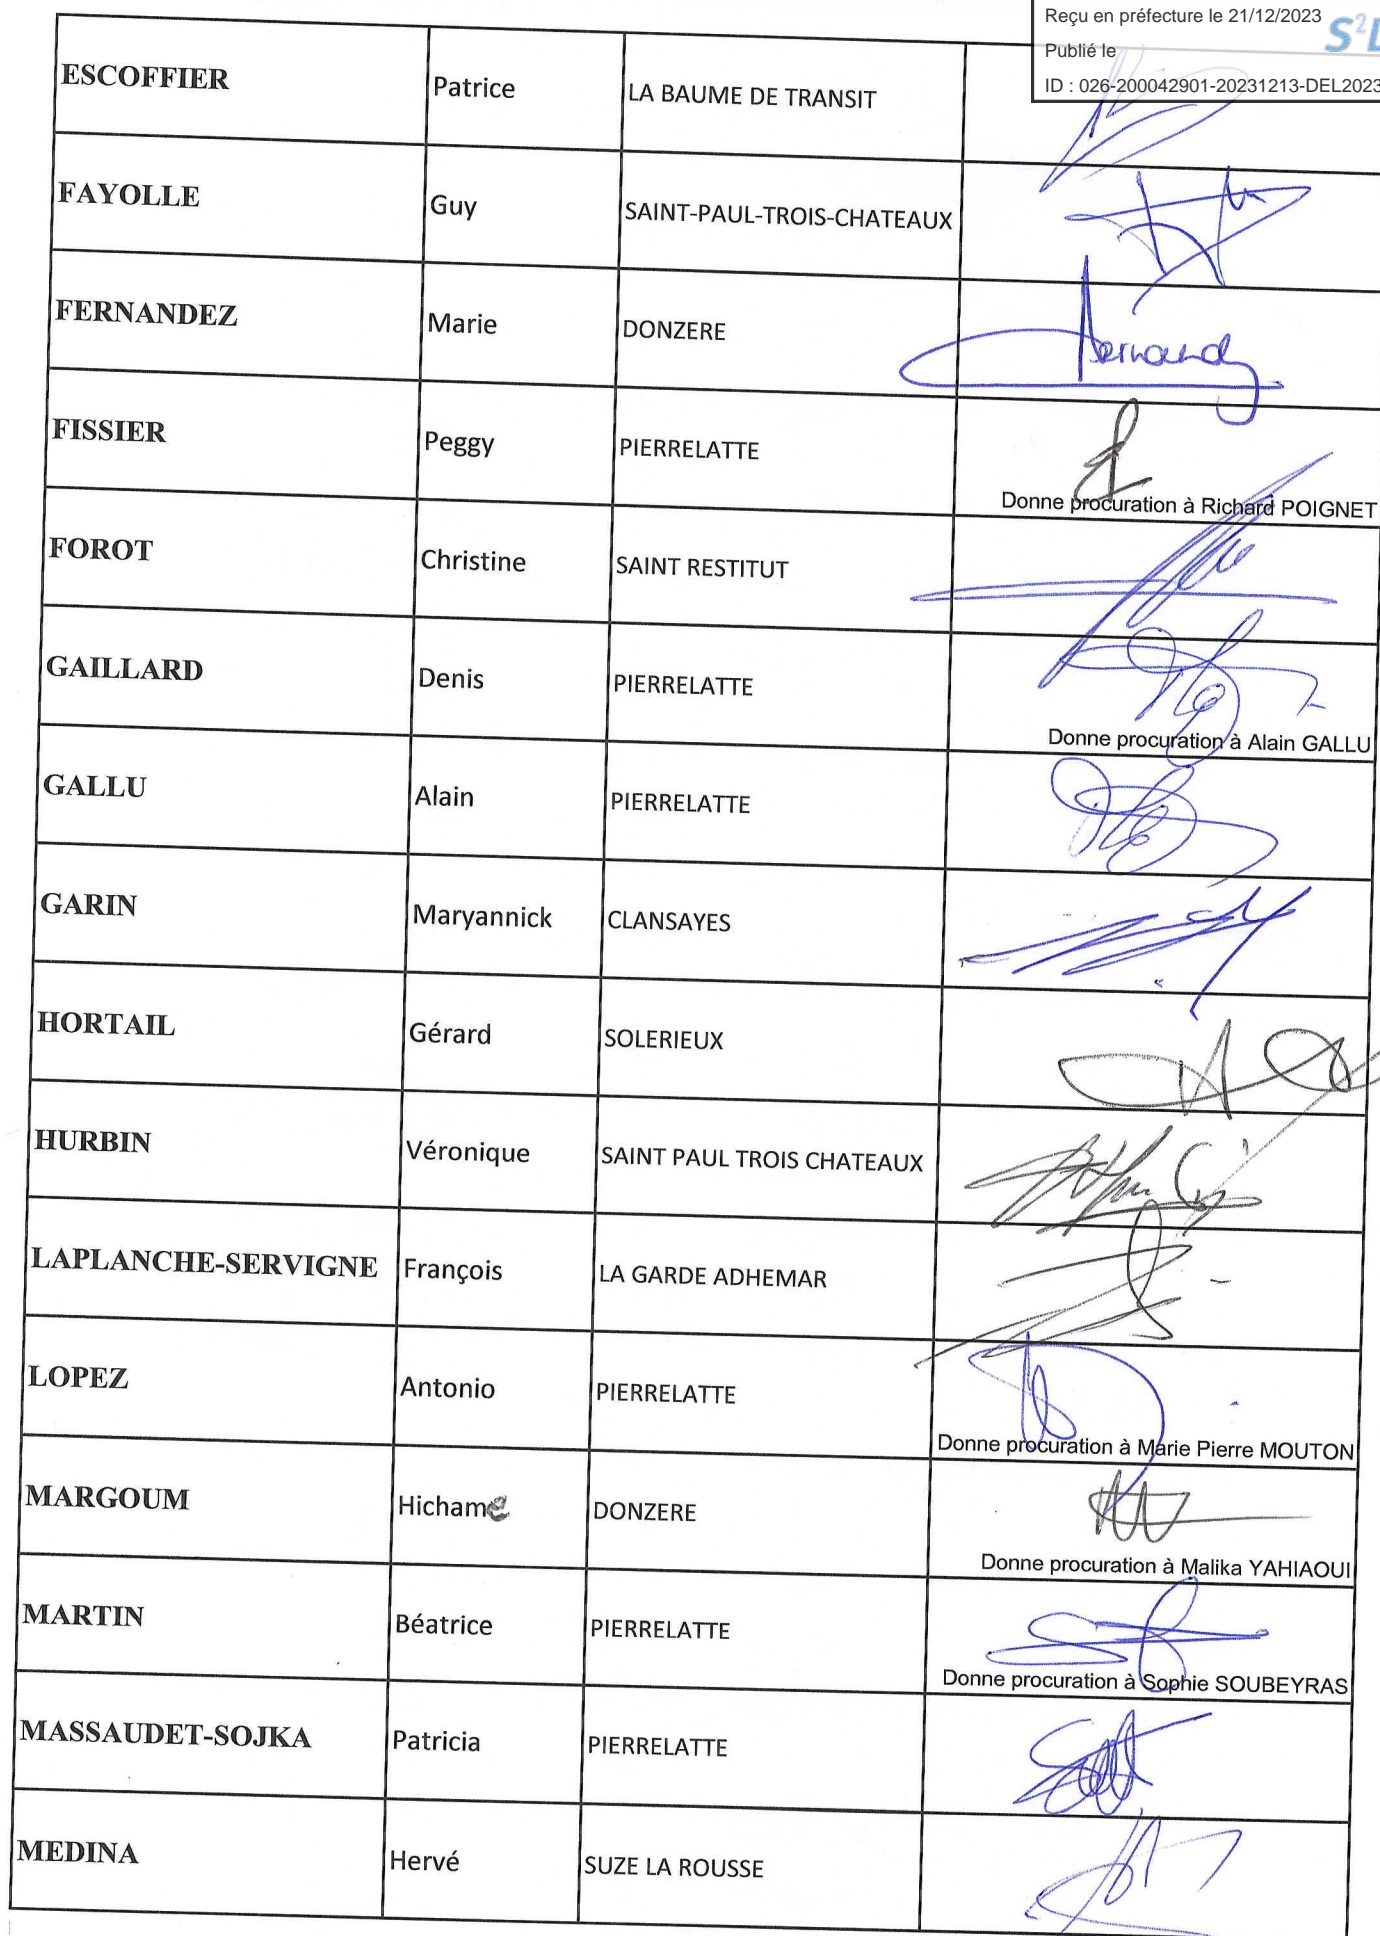 Reçu en préfecture le 21/12/2023
Publié le
ID : 026-200042901-20231213-DEL2023
ESCOFFIER Patrice LA BAUME DE TRANSIT
FAYOLLE Guy SAINT-PAUL-TROIS-CHATEAUX
FERNANDEZ Marie DONZERE
FISSIER Peggy PIERRELATTE
Donne procuration à Richard POIGNET
FOROT Christine SAINT RESTITUT
GAILLARD Denis PIERRELATTE
Donne procuration à Alain GALLU
GALLU Alain PIERRELATTE
GARIN Maryannick CLANSAYES
HORTAIL Gérard SOLERIEUX
HURBIN Véronique SAINT PAUL TROIS CHATEAUX
LAPLANCHE-SERVIGNE François LA GARDE ADHEMAR
LOPEZ Antonio PIERRELATTE
Donne procuration à Marie Pierre MOUTON
MARGOUM Hichame DONZERE
Donne procuration à Malika YAHIAOUI
MARTIN Béatrice PIERRELATTE
Donne procuration à Sophie SOUBEYRAS
MASSAUDET-SOJKA Patricia PIERRELATTE
MEDINA Hervé SUZE LA ROUSSE